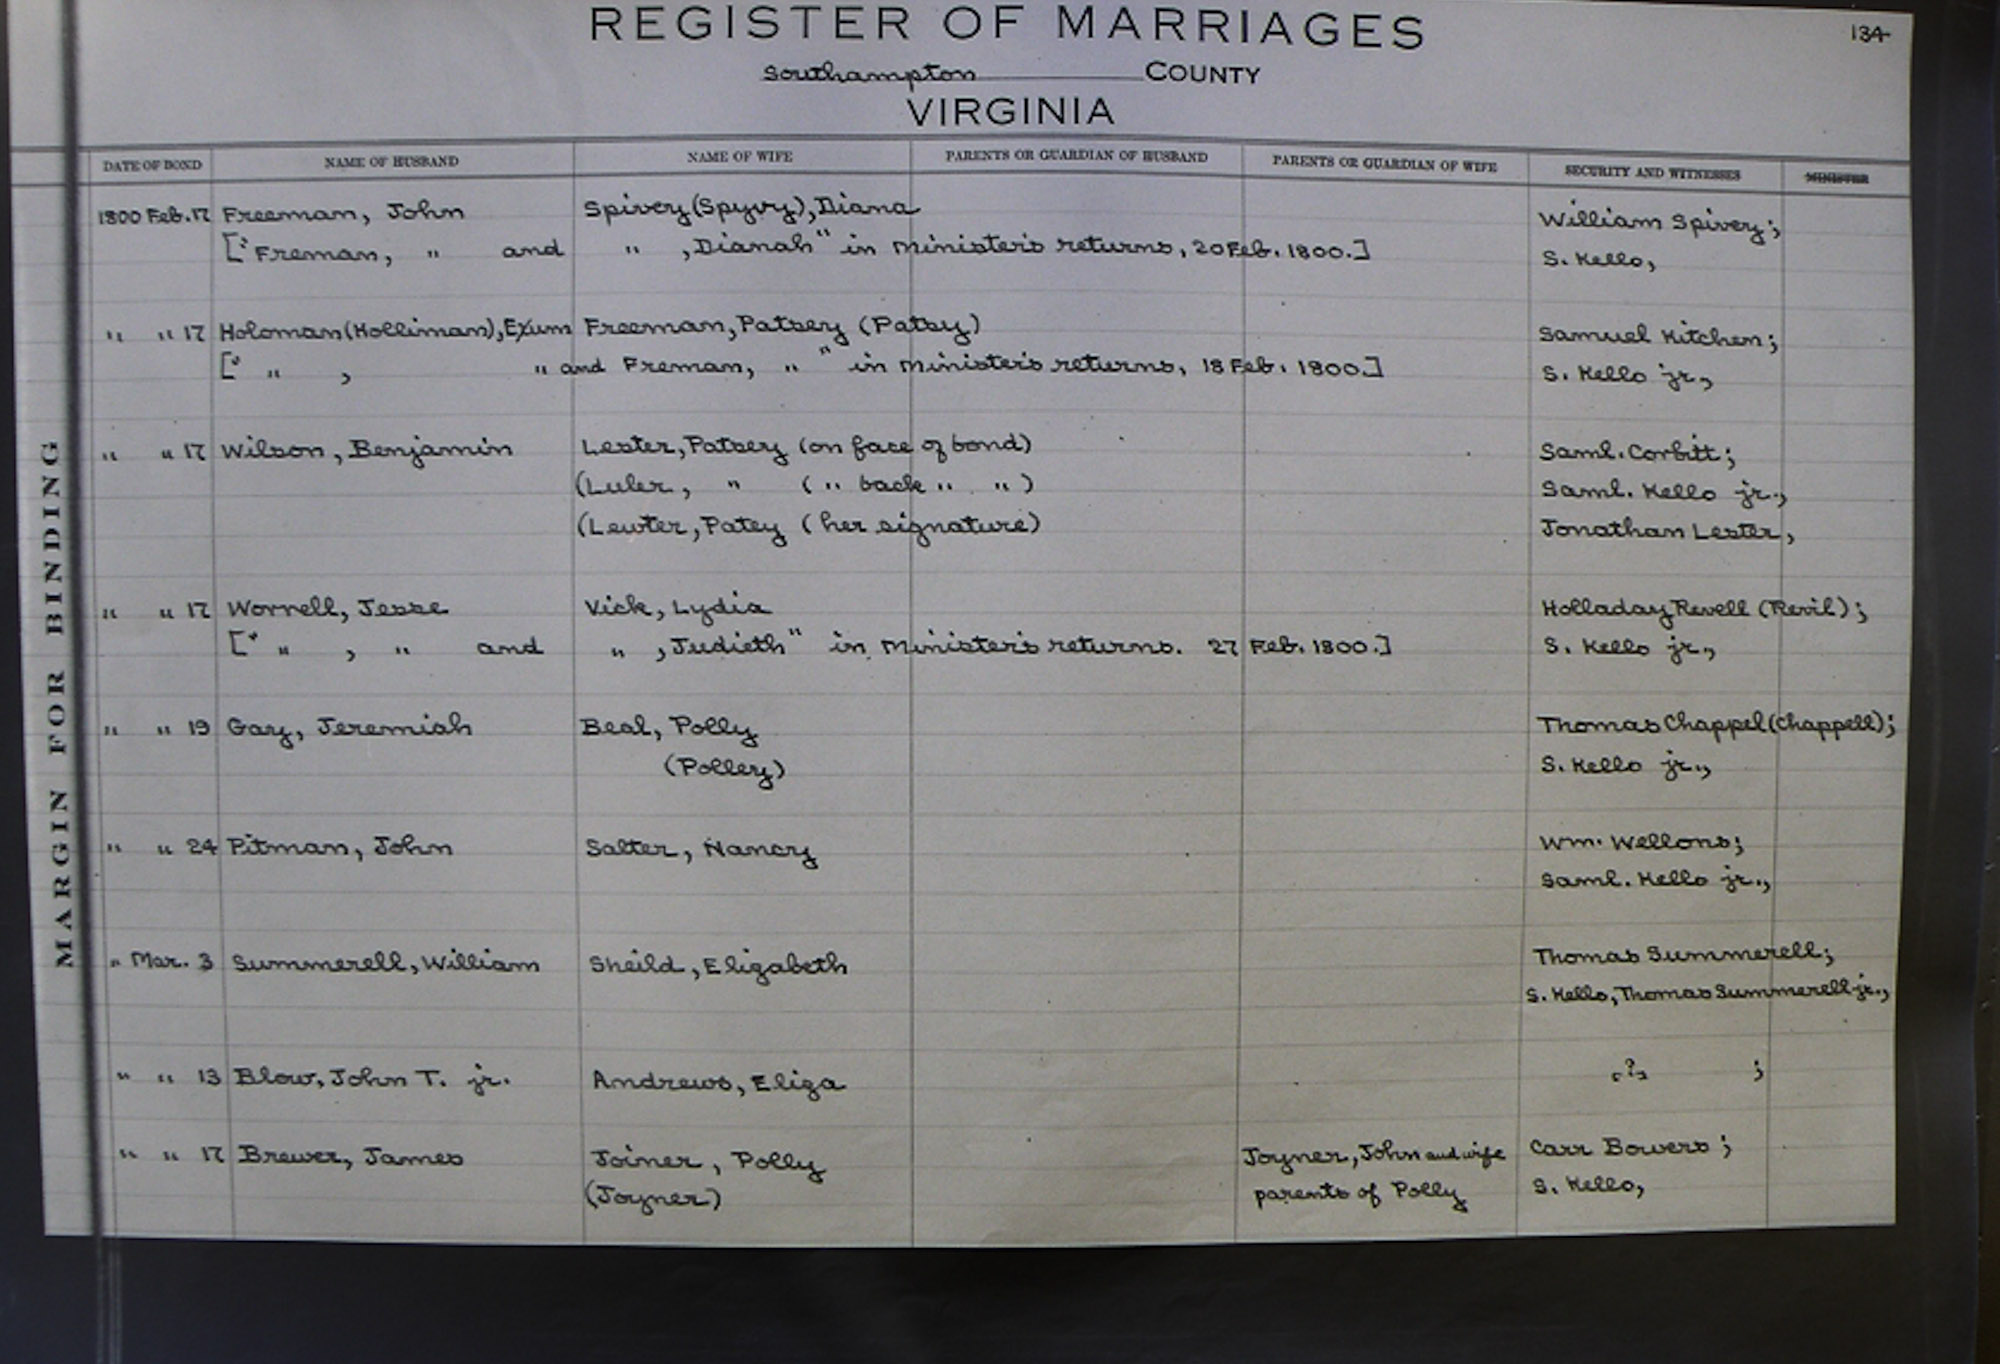 REGISTER OF MARRIAGES
134
Southampton COUNTY
VIRGINIA
DATE OF BOND NAME OF HUSBAND NAME OF WIFE PARENTS OR GUARDIAN OF HUSBAND PARENTS OR GUARDIAN OF WIFE SECURITY AND WITNESSES MINISTER
1800 Feb. 17 Freeman, John Spivey (Spyvy), Diana William Spivey;
[" Freman, " and " , Dianah" in Minister's returns, 20 Feb. 1800.] S. Kello,
" " 17 Holoman (Holliman), Exum Freeman, Patsey (Patsy) Samuel Kitchen;
[" " , " and Freman, " " in Minister's returns, 18 Feb. 1800.] S. Kello jr.,
" " 17 Wilson, Benjamin Lester, Patsey (on face of bond) Saml. Corbitt;
(Luler, " ( " back " " ) Saml. Kello jr.,
(Lewter, Patey (her signature) Jonathan Lester,
" " 17 Worrell, Jesse Vick, Lydia Holladay Revell (Revil);
[" " , " and " , Judieth" in Minister's returns. 27 Feb. 1800.] S. Kello jr.,
" " 19 Gay, Jeremiah Beal, Polly Thomas Chappel (Chappell);
(Polley) S. Kello jr.,
" " 24 Pitman, John Salter, Nancy Wm. Wellons;
Saml. Kello jr.,
" Mar. 3 Summerell, William Sheild, Elizabeth Thomas Summerell;
S. Kello, Thomas Summerell jr.,
" " 13 Blow, John T. jr. Andrews, Eliza ? ;
" " 17 Brewer, James Joiner, Polly Joyner, John and wife Carr Bowers;
(Joyner) parents of Polly S. Kello,
MARGIN FOR BINDING